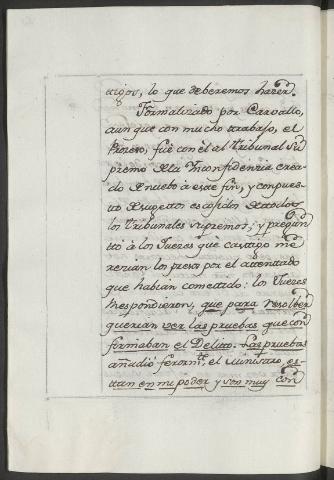 argos, lo que deberemos hazer.
Formalizado por Carvallo,
aunque con mucho trabajo, el
Proceso, fué con él al Tribunal Su
premo de la Inconfidenzia crea-
do de nuebo à este fin, y conpues
to de sugettos escojidos de todos
los Tribunales supremos; y pregun
tó à los Juezes què castigo me
rezian los presos por el attenttado
que habian comettido: los Juezes
Respondieron, que para resolber
querian ver las pruebas que con
firmaban el Delitto. Las pruebas
añadió ferozmte. el Ministro, es-
ttan en mi poder y son muy con